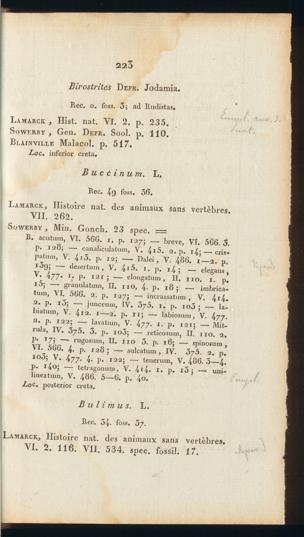 223
Birostrites DEFR. Jodamia.
Rec. 0. foss. 3; ad Rudistas.
LAMARCK, Hist. nat. VI. 2. p. 235.
SOWERBY, Gen. DEFR. Sool. p. 110.
BLAINVILLE Malacol. p. 517.
Loc. inferior creta.
Buccinum. L.
Rec. 49 foss. 36.
LAMARCK, Histoire nat. des animaux sans vertèbres.
VII. 262.
SOWERBY, Min. Conch. 23 spec. =
B. acutum, VI. 566. 1. p. 127; — breve, VI. 566. 3.
p. 128; — canaliculatum, V. 415. 2. p. 14; — cris-
patum, V. 413. p. 12; — Dalei, V. 486. 1—2. p.
139; — desertum, V. 415. 1. p. 14; — elegans,
V. 477. 1. p. 121; — elongatum, II. 110. 1. p.
15; — granulatum, II. 110. 4. p. 18; — imbrica-
tum, VI. 566. 2. p. 127; — incrassatum, V. 414.
2. p. 13; — junceum, IV. 375. 1. p. 103; — la-
biatum, V. 412. 1—2. p. 11; — labiosum, V. 477.
2. p. 122; — lavatum, V. 477. 1. p. 121; — Mit-
rula, IV. 375. 3. p. 103; — reticosum, II. 110. 2.
p. 17; — rugosum, II. 110 3. p. 16; — spinosum,
VI. 566. 4. p. 128; — sulcatum, IV. 375. 2. p.
103; V. 477. 4. p. 122; — tenerum, V. 486. 3—4.
p. 140; — tetragonum, V. 414. 1. p. 13; — uni-
lineatum, V. 486. 5—6. p. 40.
Loc. posterior creta.
Bulimus. L.
Rec. 34. foss. 37.
LAMARCK, Histoire nat. des animaux sans vertèbres.
VI. 2. 116. VII. 534. spec. fossil. 17.